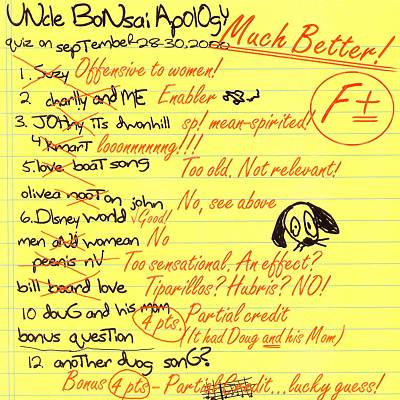 UNcle BoNsai ApolOgy
Much Better!
quiz on sepTember 28-30.2000
F±
1. Suzy Offensive to women!
2. charlly and ME Enabler
3. JOHny iTs dwonhill sp! mean-spirited!
4 Kmart looonnnnnng!!!
5. love boaT song Too old. Not relevant!
olivea nooT on john No, see above
6. DIsney world √Good!
men and womean No
peenis nV Too sensational. An effect?
bill board love Tiparillos? Hubris? NO!
10 douG and his mom 4 pts. Partial credit
bonus quesTion (It had Doug and his Mom)
12. anoTher duog sonG?
Bonus 4 pts – Partial Credit...lucky guess!